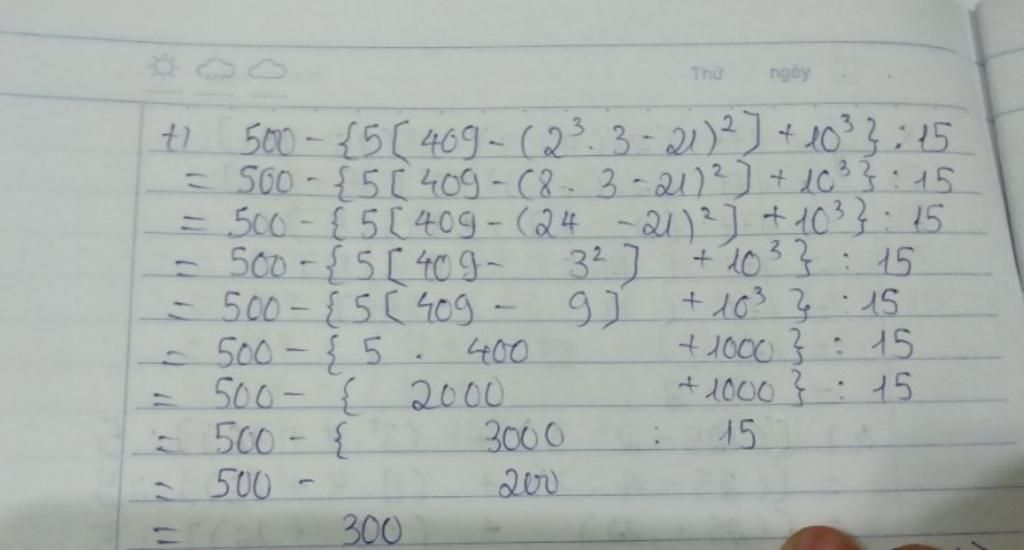 Thứ ngày
t) 500 - {5[ 409 - (2³ . 3 - 21)² ] + 10³ } : 15
= 500 - {5[ 409 - (8 . 3 - 21)² ] + 10³ } : 15
= 500 - { 5 [ 409 - (24 - 21)² ] + 10³ } : 15
= 500 - { 5 [ 409 - 3² ] + 10³ } : 15
= 500 - { 5 [ 409 - 9 ] + 10³ } : 15
= 500 - { 5 . 400 + 1000 } : 15
= 500 - { 2000 + 1000 } : 15
= 500 - { 3000 : 15
= 500 - 200
= 300